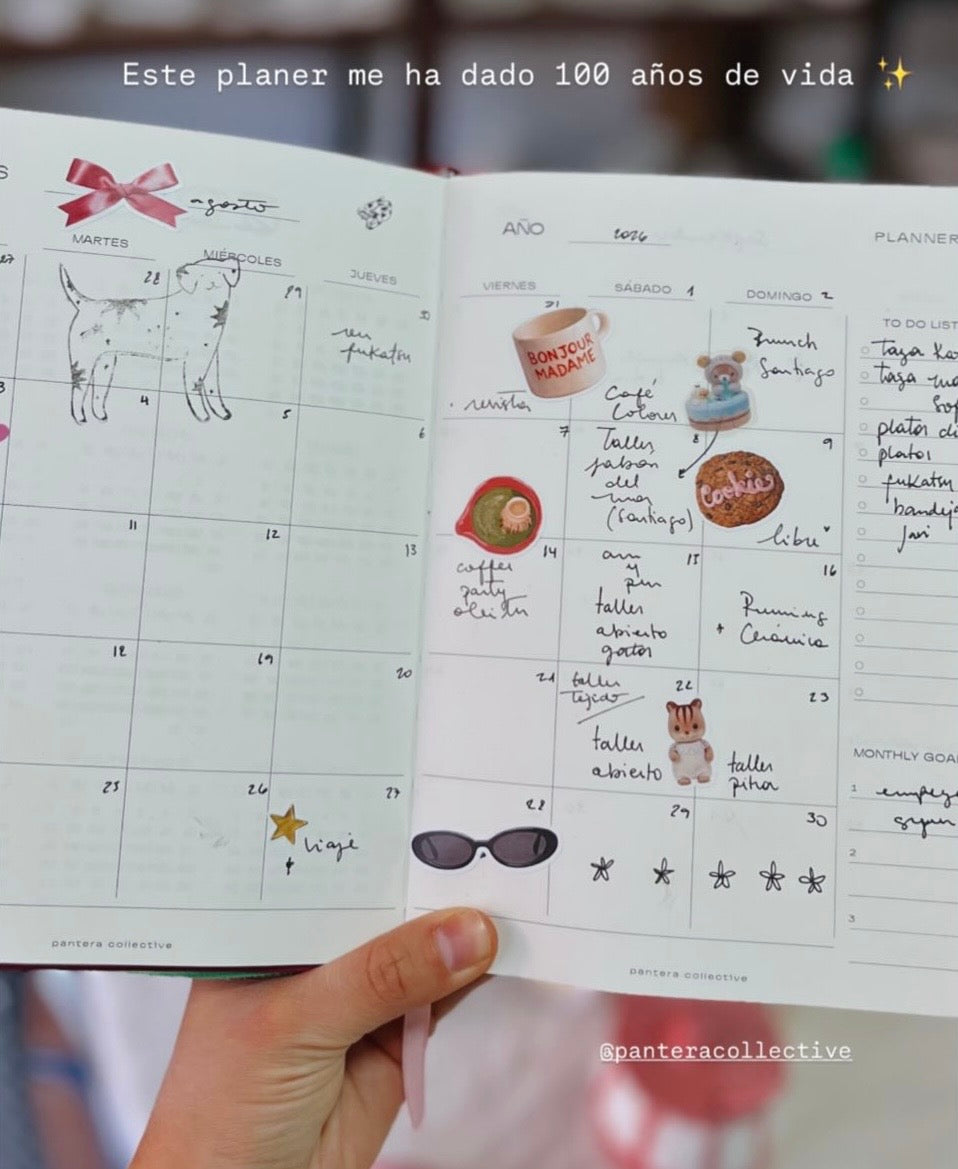 Este planer me ha dado 100 años de vida ✨
S
agosto
MARTES
MIÉRCOLES
JUEVES
AÑO
2026
PLANNER
VIERNES
SÁBADO 1
DOMINGO 2
27
28
29
30
reu
fukatsu
31
BONJOUR
MADAME
revista
Café
Colores
Brunch
Santiago
3
4
5
6
7
Taller
jabón
del
mar
(Santiago)
8
Cookies
9
libre
11
12
13
14
coffee
party
am
y
pm
taller
abierto
gatos
15
16
Running
+ Cerámica
18
19
20
21
taller
tejido
22
taller
abierto
23
taller
pitra
25
26
27
viaje
28
29
30
TO DO LIST
taza
taza
platos
platos
fukatsu
bandeja
Javi
MONTHLY GOA
1
2
3
pantera collective
pantera collective
@panteracollective